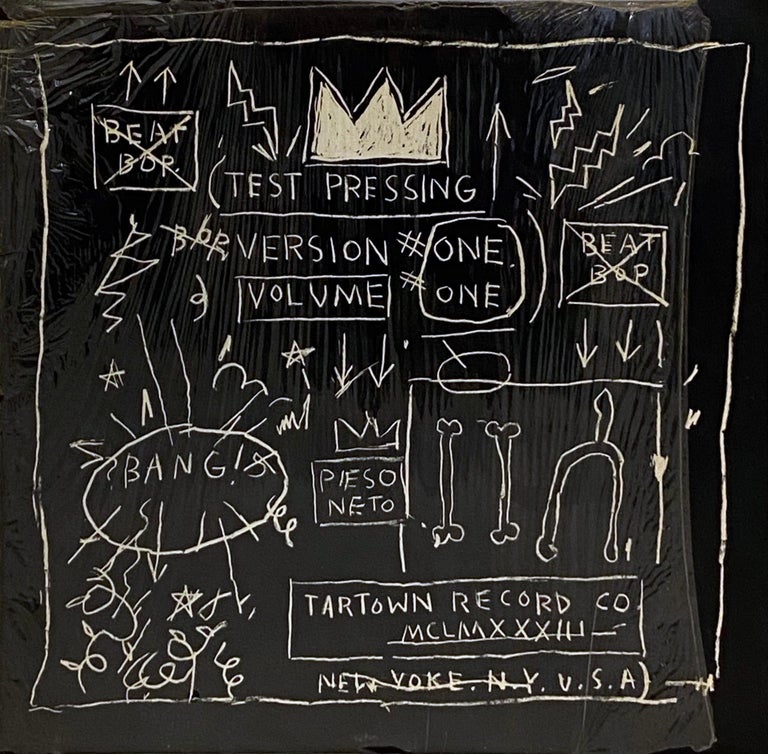 BEAT
BOP
TEST PRESSING
BOP VERSION # ONE.
VOLUME # ONE
BEAT
BOP
?BANG!
PIESO
NETO
TARTOWN RECORD CO.
MCLMXXXIII
NEW YOKE. N.Y. U.S.A)